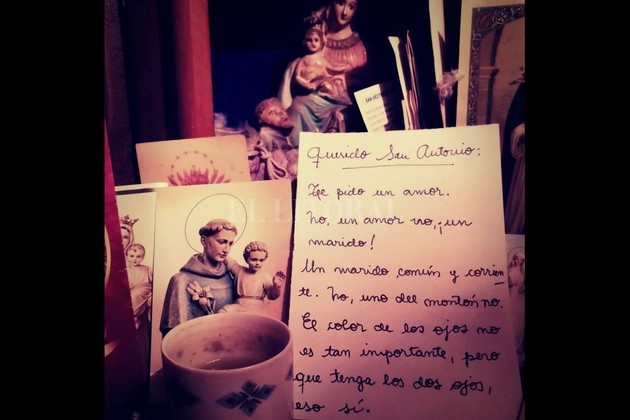 Querido San Antonio:
Te pido un amor.
No, un amor no, ¡un
marido!
Un marido común y corrien
te. No, uno del montón no.
El color de los ojos no
es tan importante, pero
que tenga los dos ojos,
eso sí.
EL LITORAL